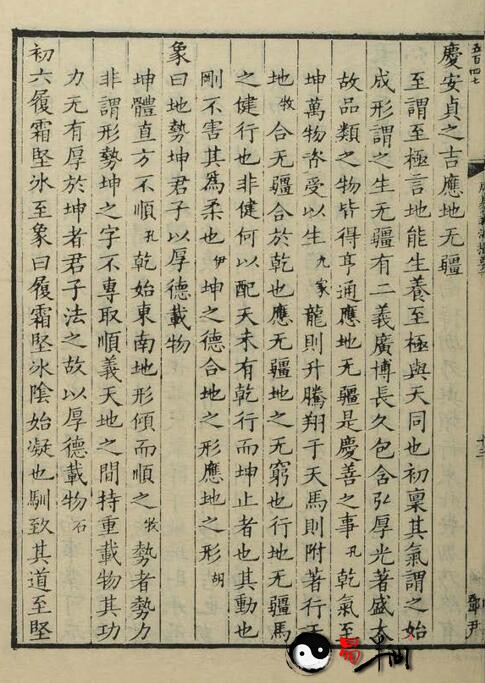 五百四七
慶安貞之吉應地无疆
至謂至極言地能生養至極與天同也初稟其氣謂之始
成形謂之生无疆有二義廣博長久包含弘厚光著盛大
故品類之物皆得亨通應地无疆是慶善之事孔乾氣至
坤萬物資受以生九家龍則升騰翔于天馬則附著行于
地牧合无疆合於乾也應无疆地之无窮也行地无疆馬
之健行也非健何以配天未有乾行而坤止者也其動也
剛不害其爲柔也伊坤之德合地之形應地之形胡
象曰地勢坤君子以厚德載物
坤體直方不順孔乾始東南地形傾而順之牧勢者勢力
非謂形勢坤之字不專取順義天地之間持重載物其功
力无有厚於坤者君子法之故以厚德載物石
初六履霜堅冰至象曰履霜堅冰陰始凝也馴致其道至堅
鄧尹